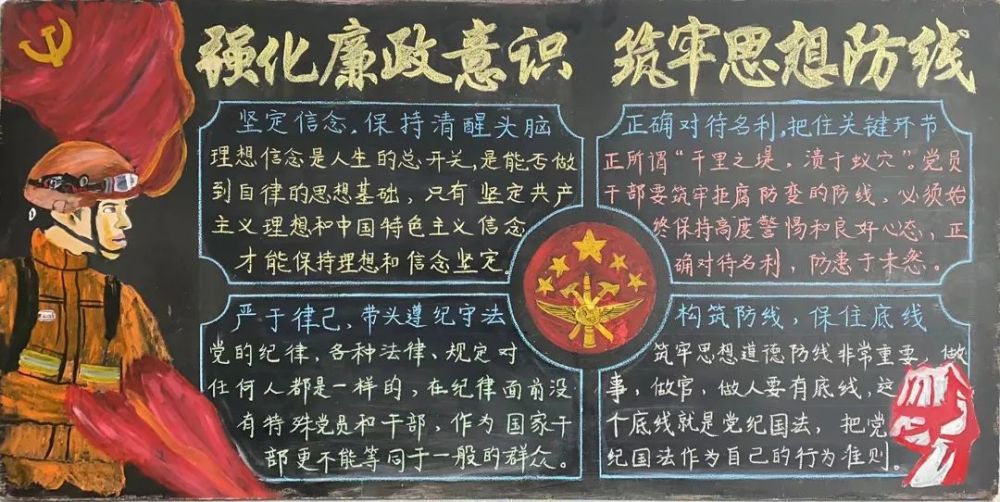 强化廉政意识 筑牢思想防线
坚定信念,保持清醒头脑
理想信念是人生的总开关,是能否做
到自律的思想基础,只有坚定共产
主义理想和中国特色主义信念
才能保持理想和信念坚定。
正确对待名利,把住关键环节
正所谓“千里之堤,溃于蚁穴”。党员
干部要筑牢拒腐防变的防线,必须始
终保持高度警惕和良好心态,正
确对待名利,防患于未然。
严于律己,带头遵纪守法
党的纪律,各种法律、规定对
任何人都是一样的,在纪律面前没
有特殊党员和干部,作为国家干
部更不能等同于一般的群众。
构筑防线,保住底线
筑牢思想道德防线非常重要,做
事,做官,做人要有底线,这
个底线就是党纪国法,把党
纪国法作为自己的行为准则。